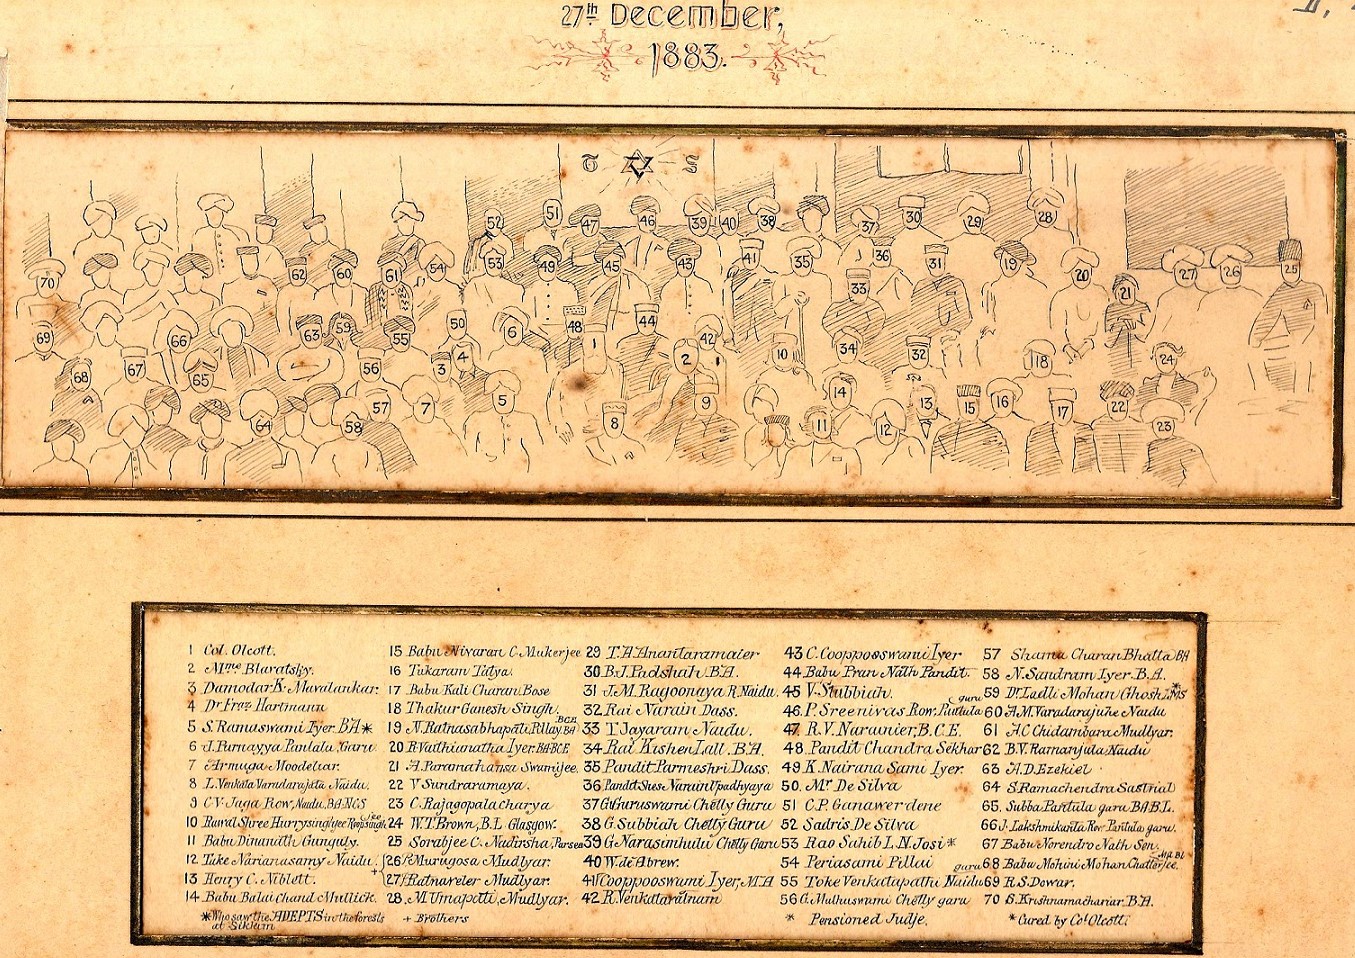 27th December,
1883.
T S
52 51 47 46 39 40 38 37 30 29 28
70 62 60 61 54 53 49 45 43 41 35 36 33 31 19 20 21 27 26 25
69 66 63 59 55 50 6 48 44 42 1 2 10 34 32 18 24
68 67 65 56 3 4 64 58 57 7 5 8 9 14 11 12 13 15 16 17 22 23
1 Col. Olcott.
2 Mme Blavatsky.
3 Damodar K. Mavalankar.
4 Dr Fraz Hartmann
5 S. Ramaswami Iyer. B.A *
6 J. Purnayya Pantalu. Garu
7 Armuga Moodeliar.
8 L. Venkata Varadarajula Naidu.
9 C.V. Jaga Row, Naidu, B.A. N.C.S
10 Rawal Shree Hurrysinghjee
11 Babu Dinanath Ganguly.
12 Take Narianasamy Naidu.
13 Henry C. Niblett.
14 Babu Balai Chand Mullick.
* Who saw the ADEPTS in the forests
at Sikkim
15 Babu Nivaran C. Mukerjee
16 Tukaram Tatya.
17 Babu Kali Charan Bose
18 Thakur Ganesh Singh.
19 N. Ratnasabhapati Pillay, B.A B.C.E
20 P. Vathianatha Iyer. B.A. B.C.E
21 A. Paramahansa Swamijee.
22 V Sundraramaya.
23 C. Rajagopalacharya
24 W. T. Brown, B.L Glasgow.
25 Sorabjee C. Nadirsha, Parsee
+ { 26 Murugosa Mudlyar.
27 Ratnaveler Mudlyar.
28 M. Umapatti, Mudlyar.
+ Brothers
29 T. A. Anantaramaier
30 B. J. Padshah B.A.
31 J. M. Ragoonaya R. Naidu.
32 Rai Narain Dass.
33 T Jayaram Naidu.
34 Rai Kishen Lall. B.A.
35 Pandit Parmeshri Dass.
36 Pandit Shes Narain Upadhyaya
37 G. Guruswami Chetty Guru
38 G. Subbiah Chetty Guru
39 G. Narasimhulu Chetty Garu
40 W. de Abrew.
41 Cooppooswami Iyer, M.A
42 R. Venkataratnam
43 C. Cooppooswami Iyer
44 Babu Pran Nath Pandit.
45 V. Stubbiah.
46. P. Sreenivas Row. Pantula garu
47. R. V. Naranier, B.C.E.
48 Pandit Chandra Sekhar
49 K. Nairana Sami Iyer.
50. Mr De Silva
51 C. P. Ganawerdene
52 Sadris De Silva
53 Rao Sahib L. N. Josi *
54 Periasami Pillai
55 Toke Venkatapathi Naidu garu
56 G. Muthuswami Chetty garu
* Pensioned Judje.
57 Shama Charan Bhatta B.A
58 N. Sandram Iyer. B.A.
59 Dr Ladli Mohan Ghosh L.M.S *
60 A. M. Varadarajuhe Naidu
61 A. C. Chidambara Mudlyar.
62 B. V. Ramanjula Naidu
63 A. D. Ezekiel
64 S. Ramachendra Sastrial
65. Subba Pantula garu B.A B.L.
66 J. Lakshmikanta Row. Pantula garu.
67 Babu Norendro Nath Sen.
68 Babu Mohini Mohan Chatterjee. M.A B.L
69 R. S. Dowar.
70 S. Krishnamachariar. B.A.
* Cured by Col Olcott.